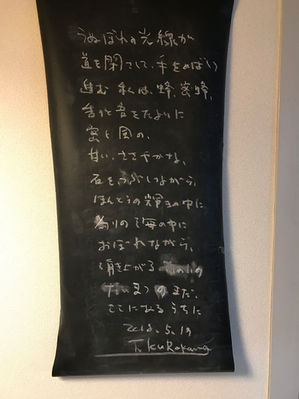 うぬぼれの光線が
道を閉ざして、手をのばし
進む 私は、蜂、蜜蜂、
舌と音をたよりに
蜜と風の、
甘い、ささやかな、
石をつぶしながら、
ほんとうの輝きの中に
偽りの海の中に
おぼれながら、
湧き上がる
まだ、
ここにいるうちに
2018.5.19
T. Kurokawa